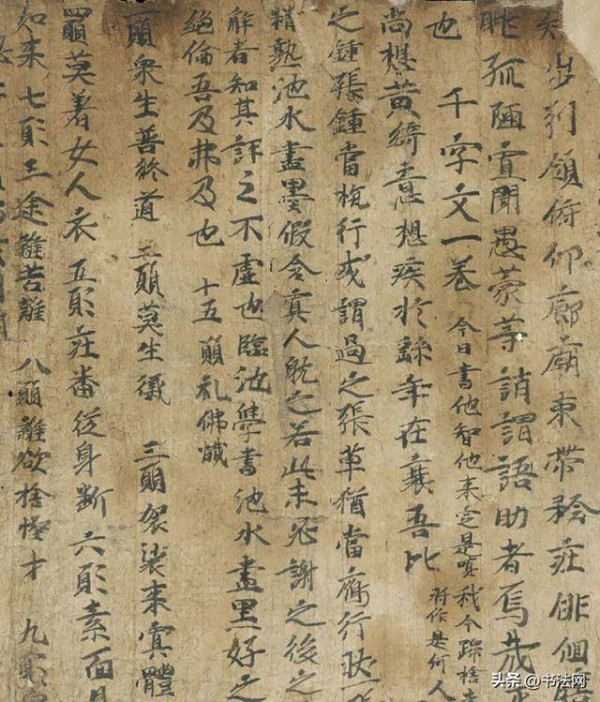 步引領俯仰廊廟束帶矜莊俳佪瞻
眺孤陋寡聞愚蒙等誚謂語助者焉哉乎
也 千字文一卷 今日書他智他來定是嗔我今蹤捨
將作是何人
尚想黃綺意想疾於繇年在襄吾比
之鍾張鍾當抗行或謂過之張草猶當鴈行
精熟池水盡墨假令寡人耽之若此未必謝之後之
解者知其評之不虛也臨池學書池水盡墨好之
絕倫吾及弗及也 十五願礼佛
願眾生善終道 三願莫生 三願袈裟來寞體
四願莫著女人衣 五願莊番從身斷 六願素面
如來 七願三途離苦難 八願離欲捨慳才 九願
头条 @书法网